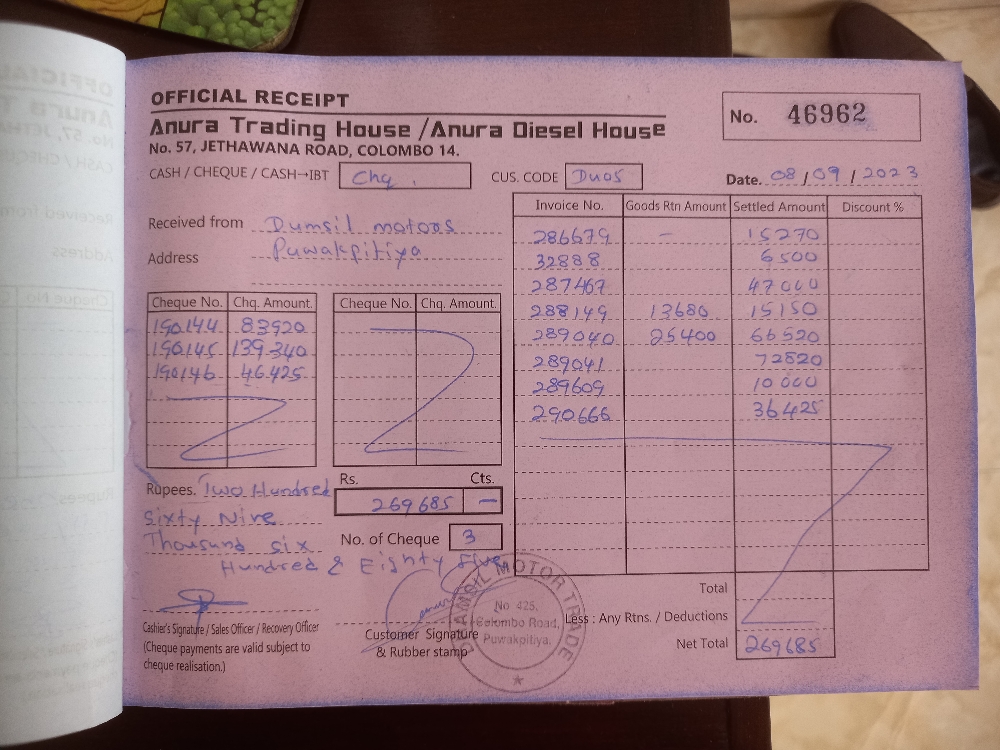 OFFICIAL RECEIPT
Anura Trading House / Anura Diesel House
No. 57, JETHAWANA ROAD, COLOMBO 14.
No. 46962
CASH / CHEQUE / CASH→IBT Chq.
CUS. CODE Du05
Date. 08/09/2023
Received from Dumsil motors
Address Puwakpitiya
Cheque No. Chq. Amount.
190144 83920
190145 139340
190146 46425
Cheque No. Chq. Amount.
Invoice No. Goods Rtn Amount Settled Amount Discount %
286679 – 15270
32888 6500
287467 47000
288149 13680 15150
289040 25400 66520
289041 72820
289609 10000
290666 36425
Rupees. Two Hundred
Sixty Nine
Thousand six
Hundred & Eighty five
Rs. Cts.
269685 –
No. of Cheque 3
Total
Less : Any Rtns. / Deductions
Net Total 269685
Cashier's Signature / Sales Officer / Recovery Officer
(Cheque payments are valid subject to
cheque realisation.)
Customer Signature
& Rubber stamp
MOTOR TRADE
No 425,
Colombo Road,
Puwakpitiya.